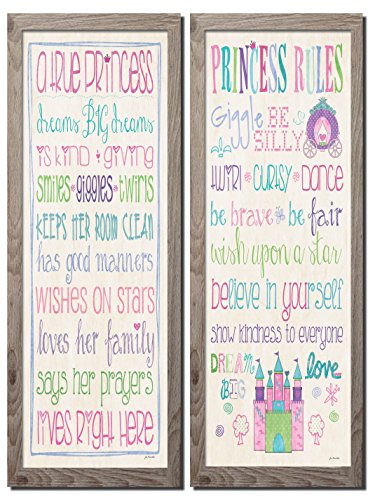 A TRUE PRINCESS
dreams BIG dreams
is kind + giving
smiles giggles twirls
KEEPS HER ROOM CLEAN
has good manners
WISHES ON STARS
loves her family
says her prayers
lives RiGht HERE
PRINCESS RULES
Giggle BE
SILLY
TWIRL CURTSY DANCE
be brave be fair
wish upon a star
believe in yourself
show kindness to everyone
DREAM love
BiG